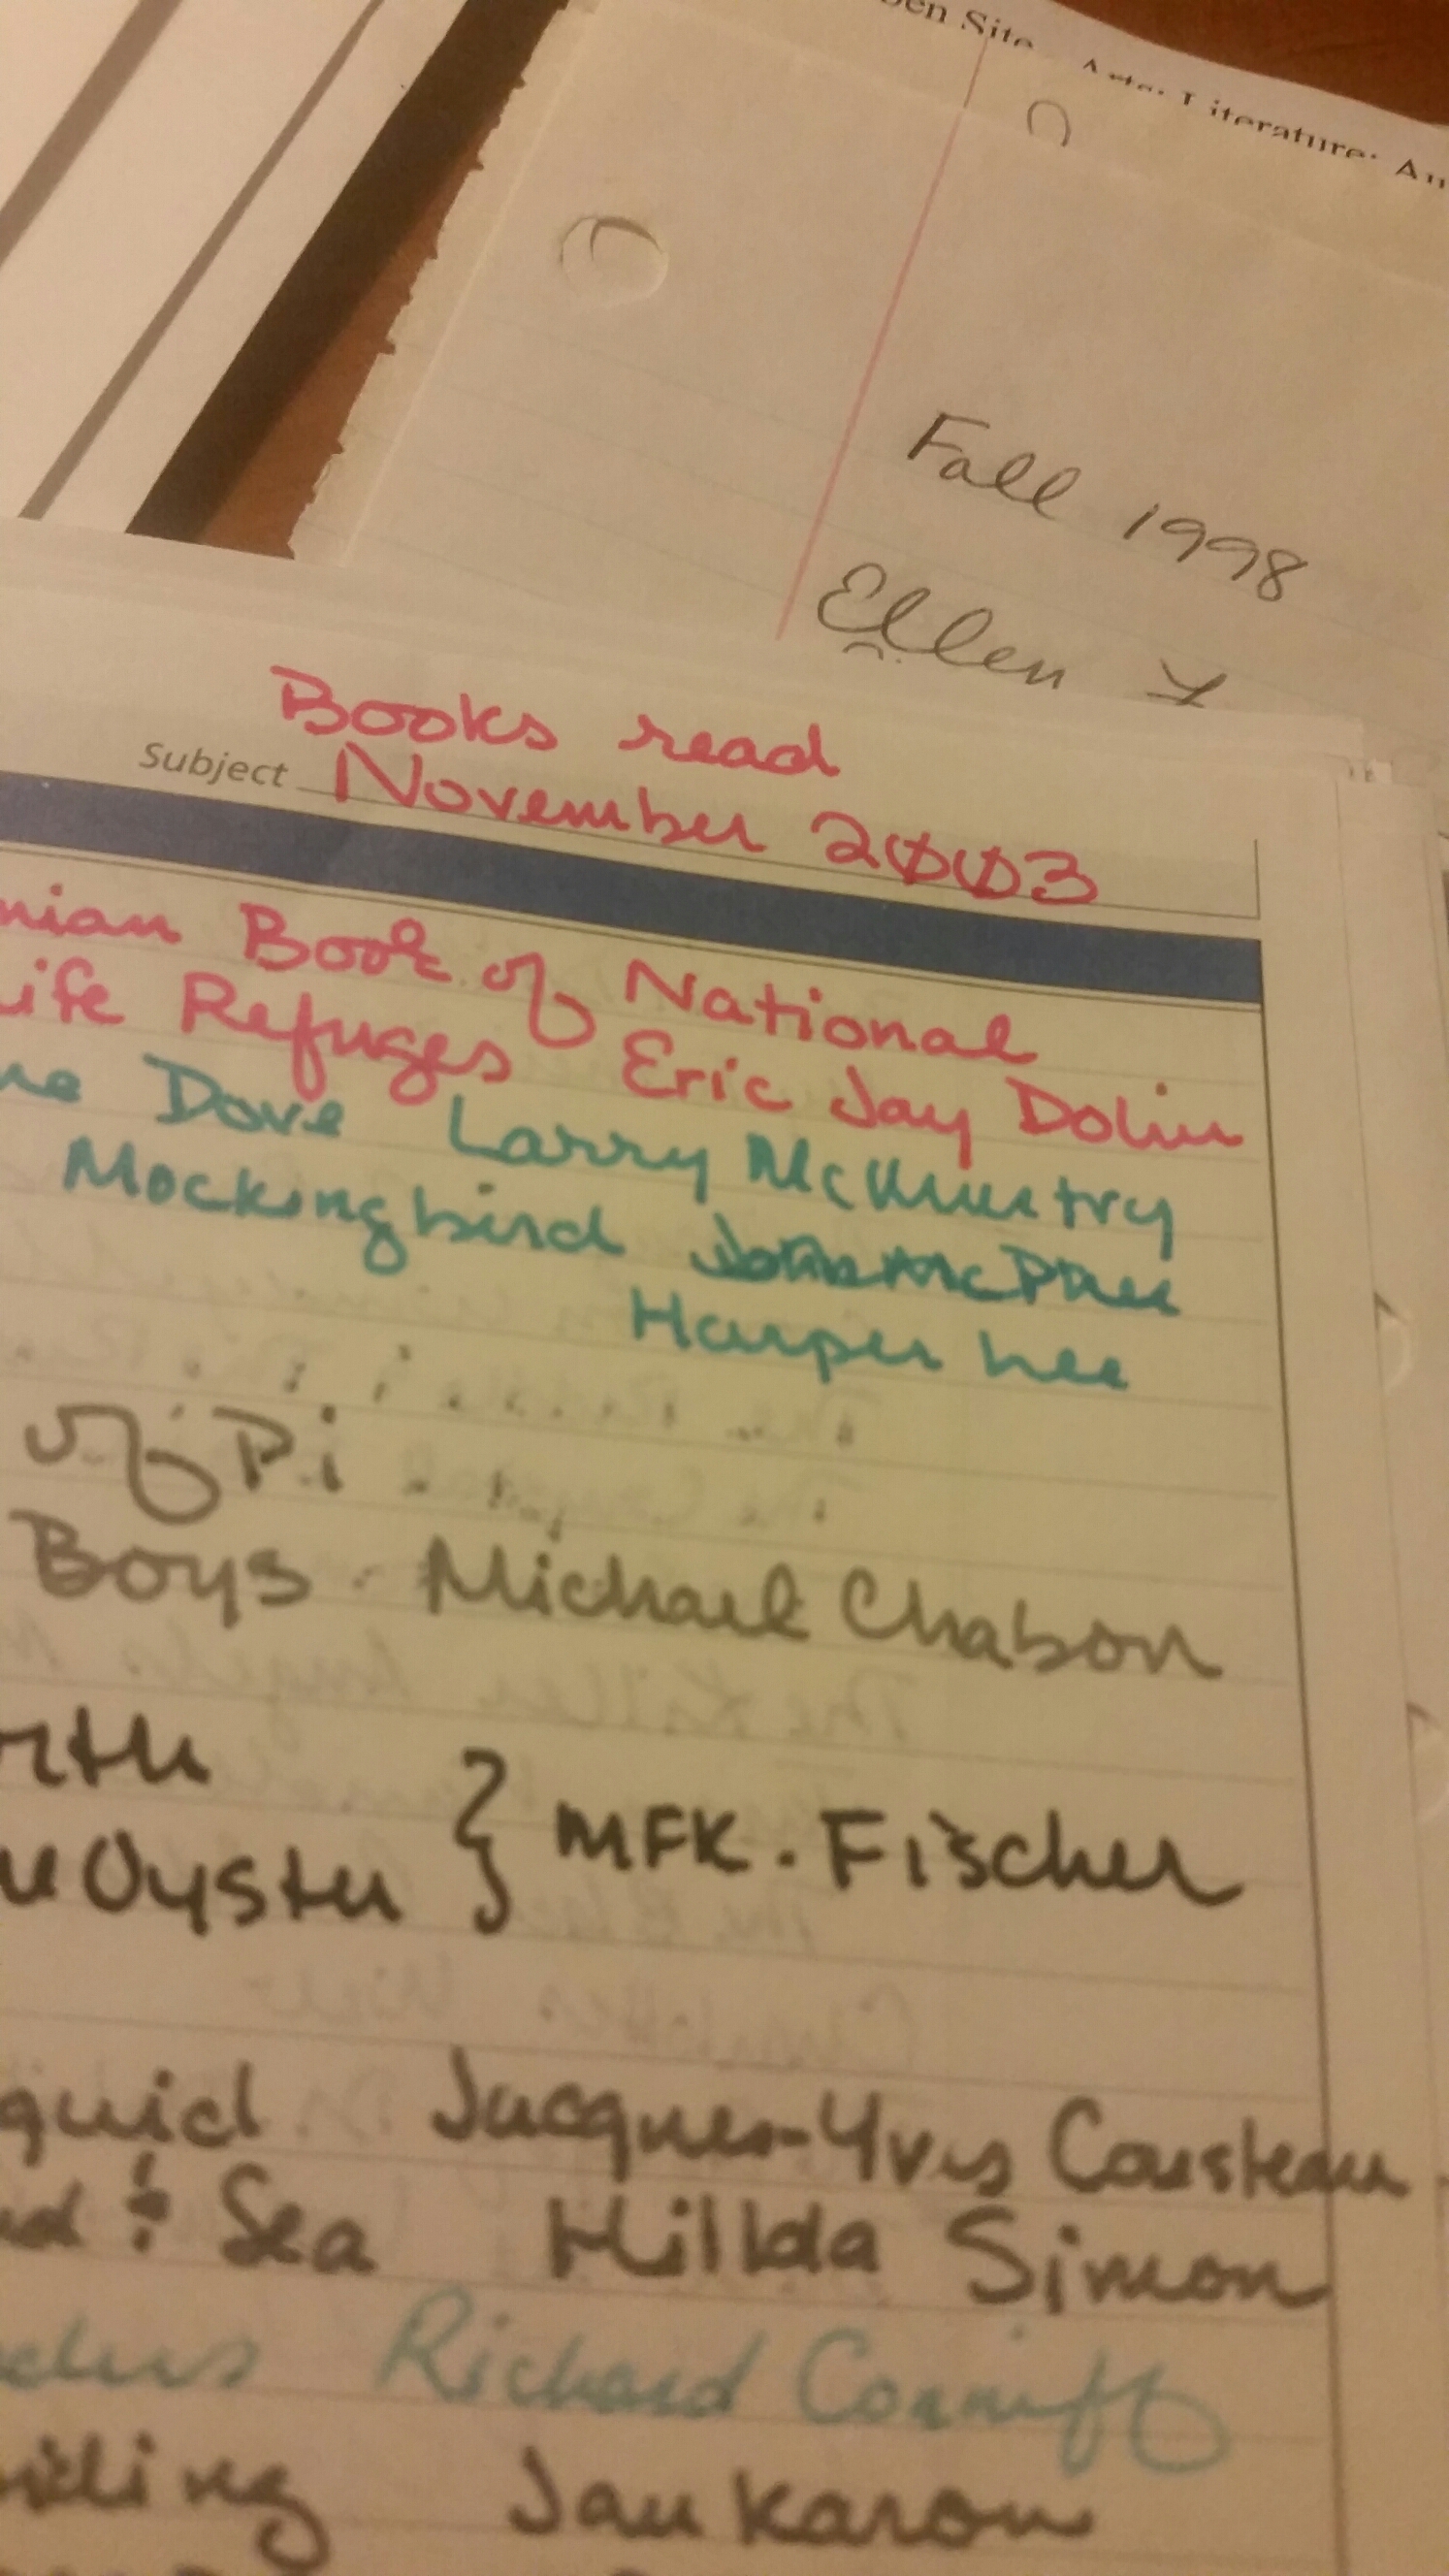 Site
Literature:
Fall 1998
Ellen
Books read
Subject November 2003
nian Book of National
ife Refuges Eric Jay Dolin
ne Dove Larry McMurtry
Mockingbird John McPhee
Harper Lee
of Pi
Boys. Michael Chabon
rth
Oyster } MFK. Fischer
quid Jacques-Yves Cousteau
d & Sea Hillda Simon
Richard Conniff
Jan Karon